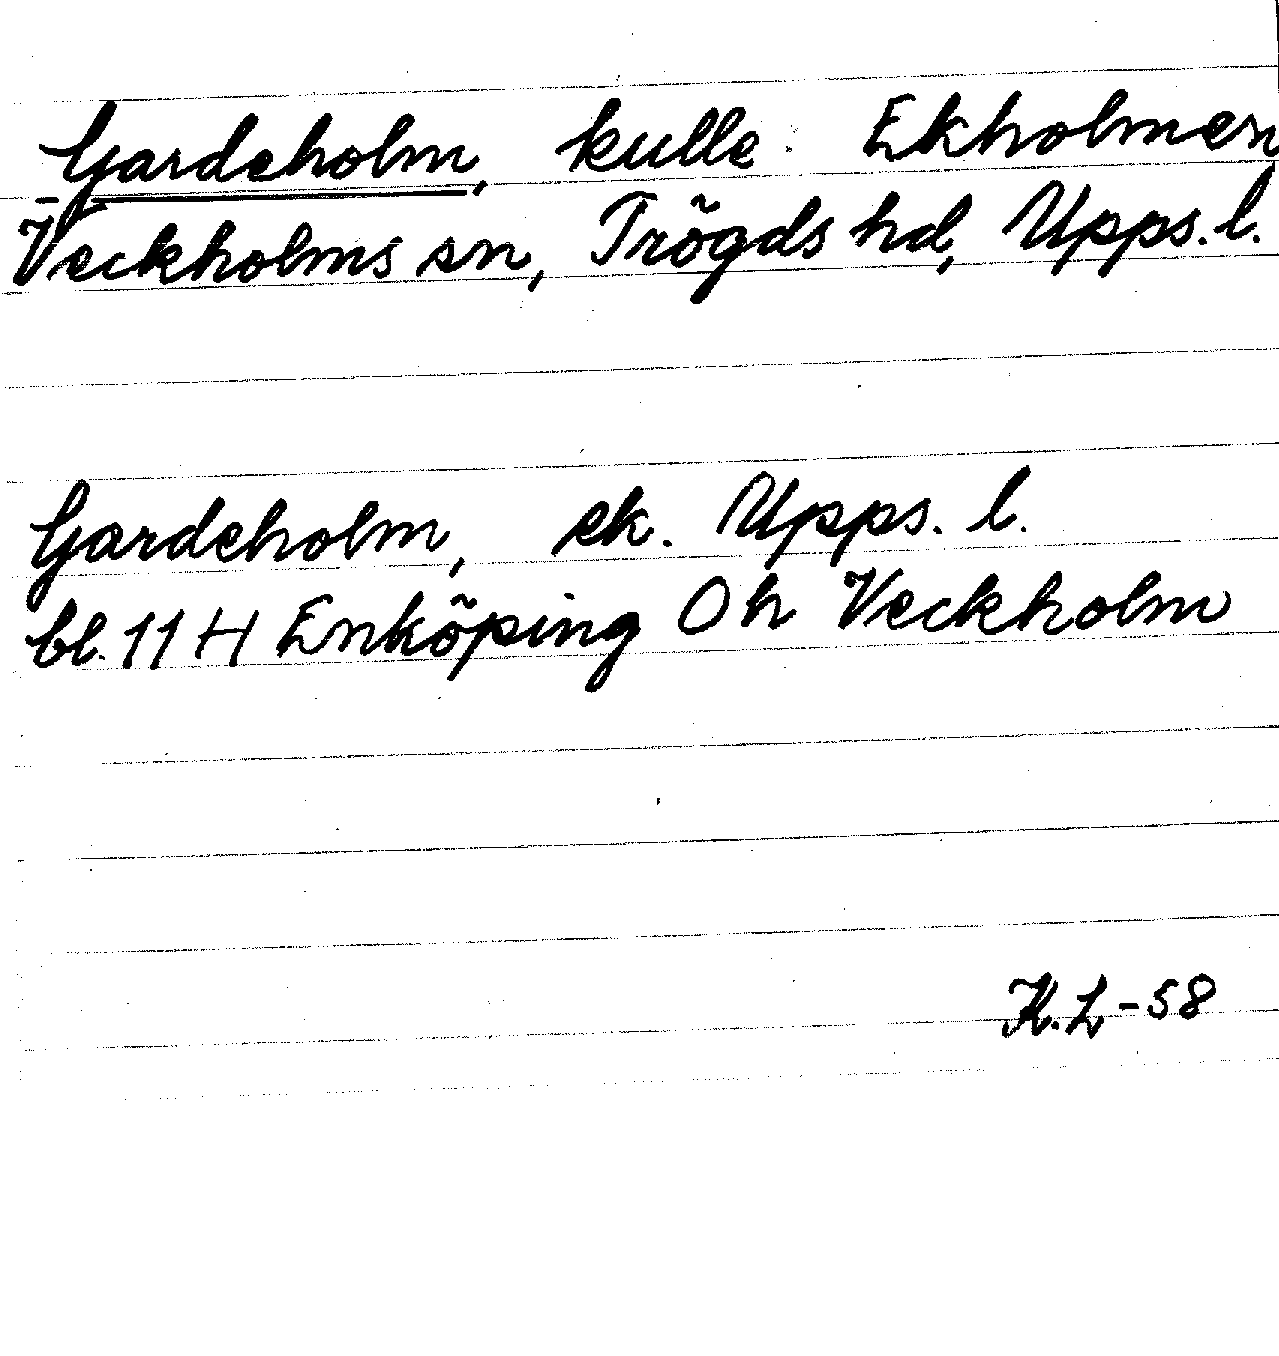 Gardeholm, kulle Ekholmen
Veckholms sn, Trögds hd, Upps. l.
Gardeholm, ek. Upps. l.
bl. 11 H Enköping 0 h Veckholm
K.L-58